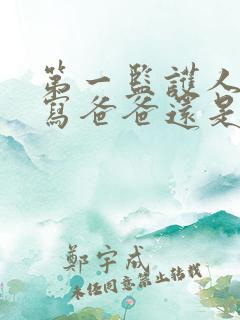 第一監護人
寫爸爸還是
鄭宇成
未經同意禁止轉載